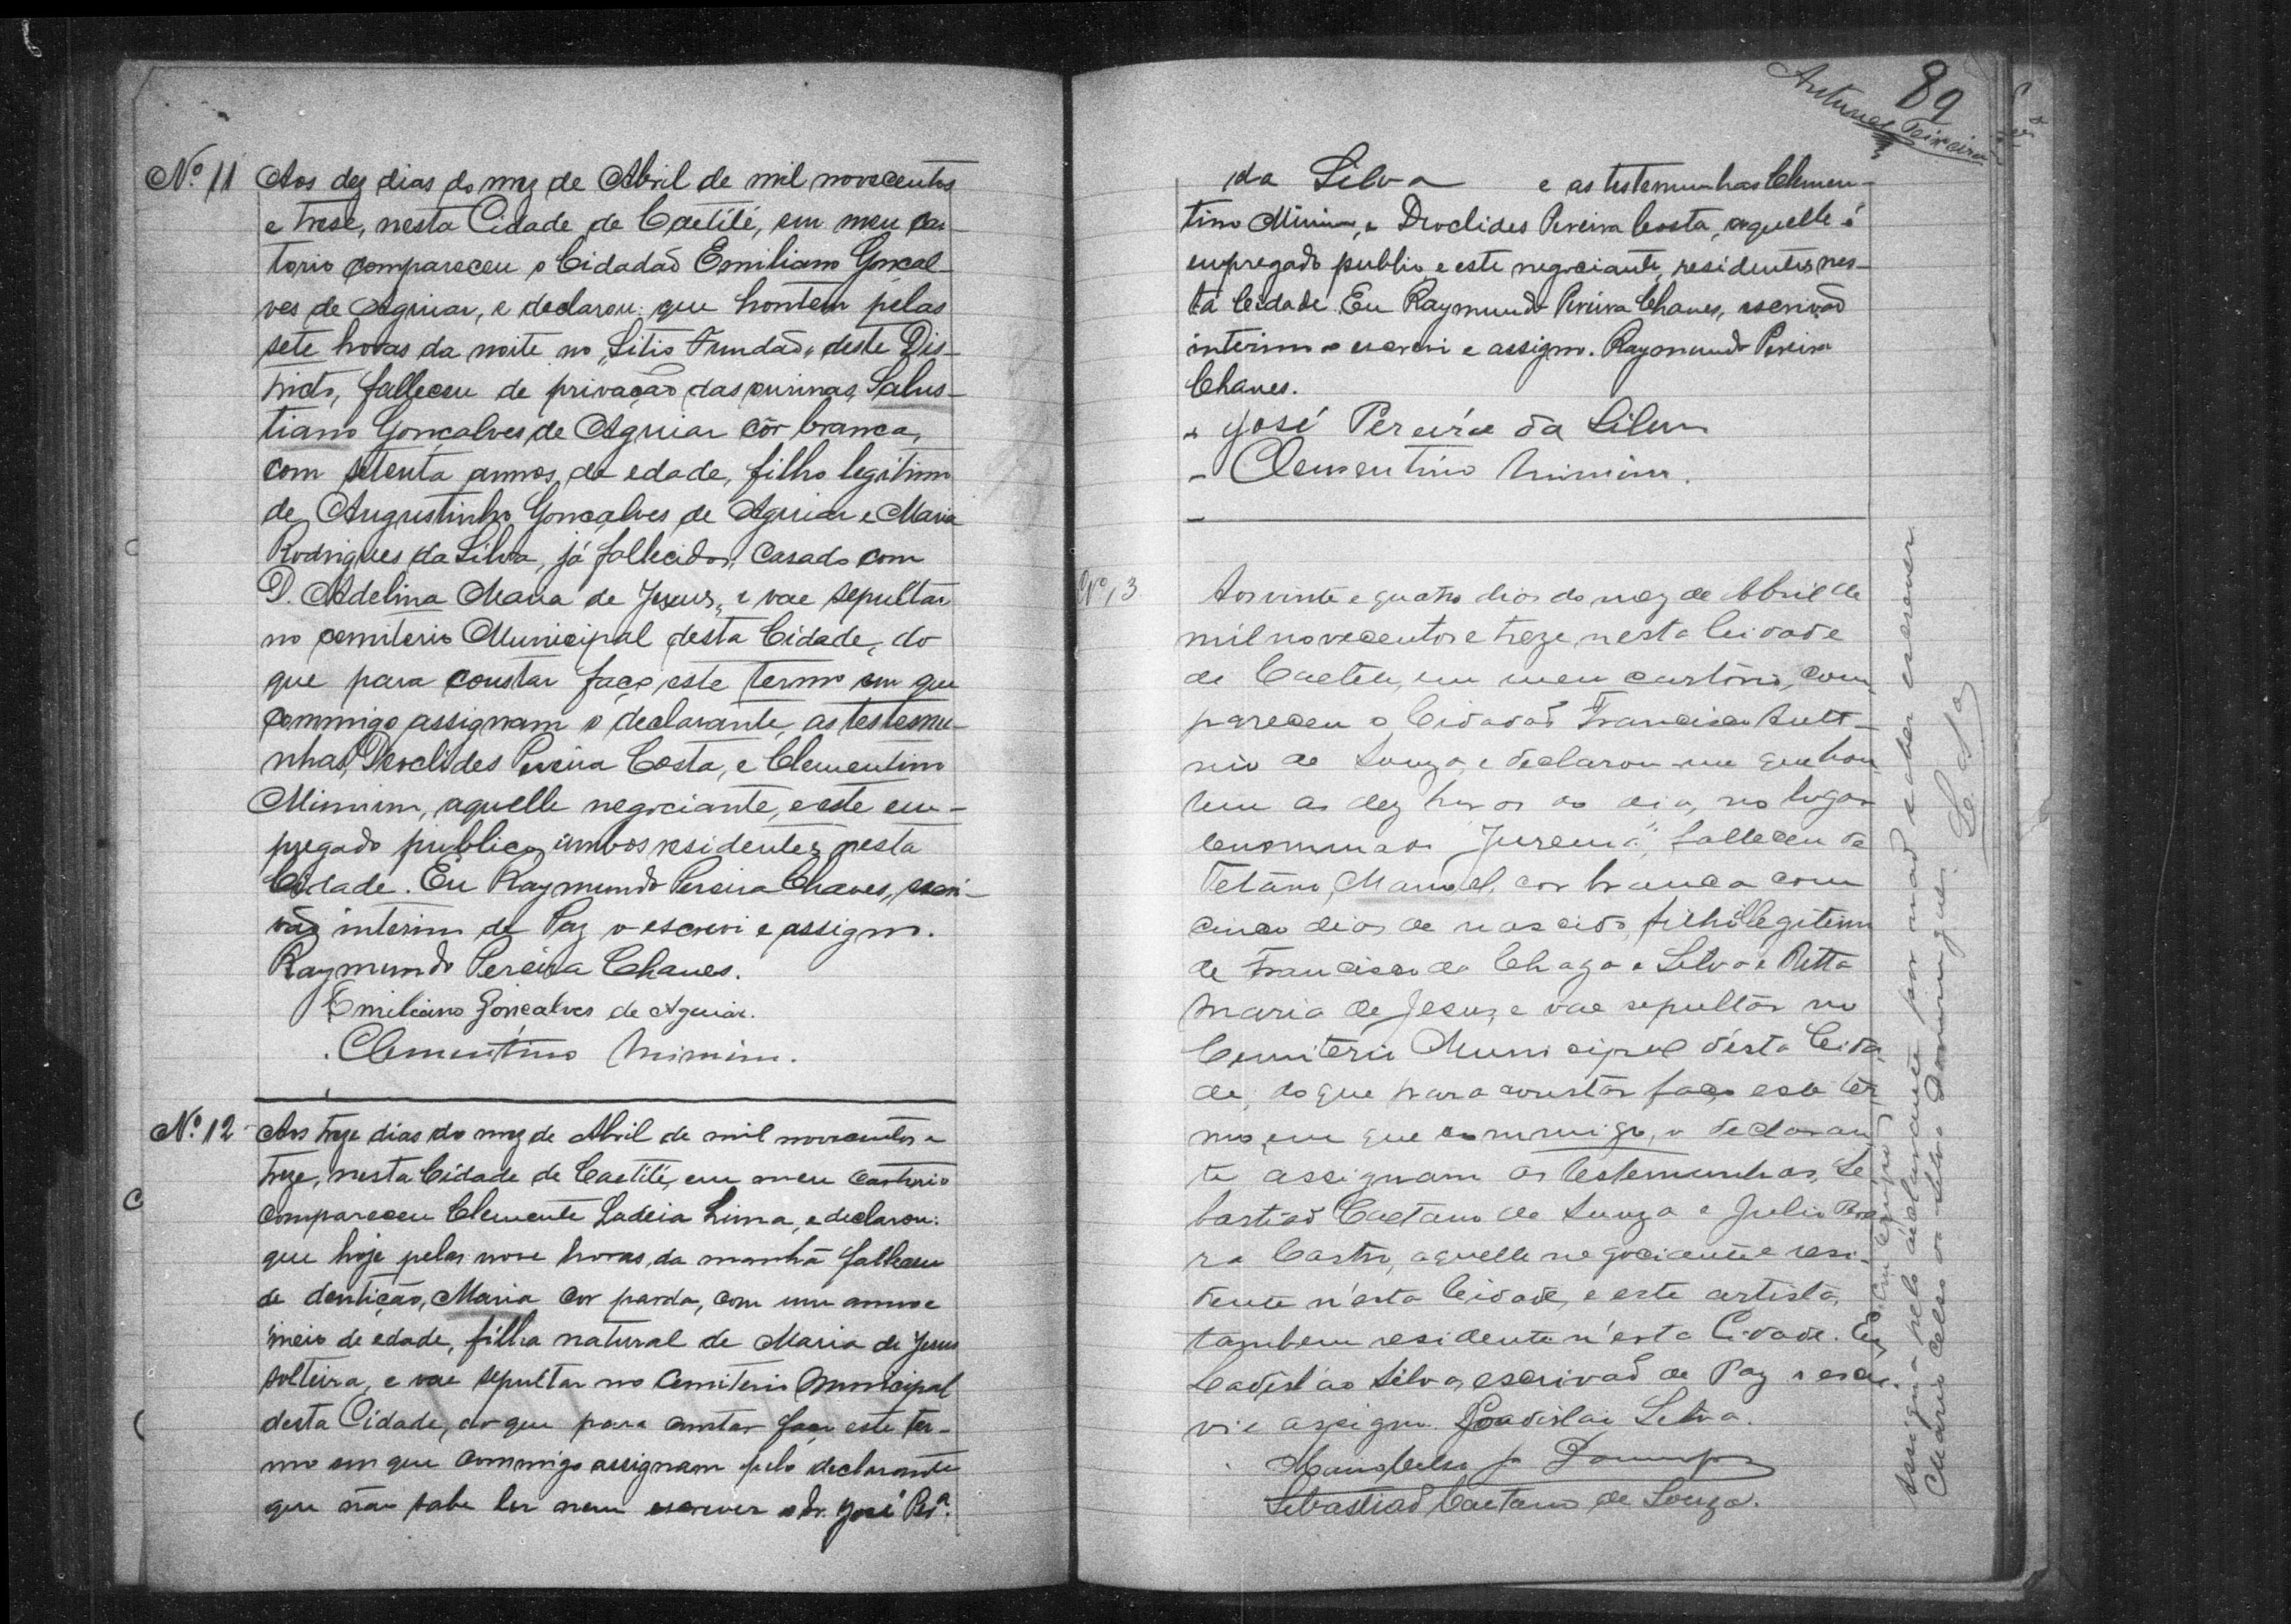 Nº 11 Aos dez dias do mez de Abril de mil novecentos
e trese, nesta Cidade de Caetité, em meu car-
torio compareceu o Cidadaõ Emiliano Gonçal-
ves de Aguiar, e declarou: que hontem pelas
sete horas da noite no "Sitio Fundaõ" deste Dis-
tricto, falleceu de privação das ourinas, Salus-
tiano Gonçalves de Aguiar côr branca,
com setenta annos de edade, filho legitimo
de Augustinho Gonçalves de Aguiar e Maria
Rodrigues da Silva, já fallecidos, casado com
D. Adelina Maria de Jesus, e vae sepultar
no cemiterio Municipal desta Cidade, do
que para constar faço este termo em que
commigo assignam o declarante, as testemu-
nhas, Deoclides Pereira Costa, e Clementino
Mimim, aquelle negociante, e este em-
pregado publico, ambos residentes nesta
Cidade. Eu Raymundo Pereira Chaves, escri-
vão interino de Paz o escrevi e assigno.
Raymundo Pereira Chaves.
Emiliano Gonçalves de Aguiar.
Clementino Mimim.
Nº 12 Aos treze dias do mez de Abril de mil novecentos e
treze, nesta Cidade de Caetité, em meu cartorio
compareceu Clemente Ladeia Lima, e declarou:
que hoje pelas nove horas da manhã falleceu
de dentição, Maria cor parda, com um anno e
meio de edade, filha natural de Maria de Jesus
solteira, e vae sepultar no Cemiterio Municipal
desta Cidade, do que para constar faço este ter-
mo em que commigo assignam pelo declarante
que não sabe ler nem escrever o dr. José Per.ª
89
Antunes Teixeira
da Silva e as testemunhas Clemen-
tino Mimim, e Deoclides Pereira Costa, aquelle é
empregado publico e este negociante, residentes nes-
ta Cidade. Eu Raymundo Pereira Chaves, escrivão
interino o escrevi e assigno. Raymundo Pereira
Chaves.
José Pereira da Silva
Clementino Mimim.
Nº 13 Aos vinte e quatro dias do mez de Abril de
mil novecentos e treze, nesta Cidade
de Caeteté, em meu cartorio, com
pareceu o Cidadaõ Francisco Anto-
nio de Souza, e declarou-me que hon
tem as dez horas do dia, no lugar
denominado "Jurema", falleceu de
Tetano, Manoel, cor branca com
cinco dias de nascido, filho illegitimo
de Francisco da Chaga e Silva e Ritta
Maria de Jesus, e vae sepultar no
Cemiterio Municipal d'esta Cida
de, do que para constar faço este ter
mo, em que commigo, o declaran
te assignam as testemunhas, Se
bastiaõ Caetano de Souza e Julio Perei
ra Castro, aquelle negociante e resi-
dente n'esta Cidade, e este artista,
tambem residente n'esta Cidade. Eu
Ladisláo Silva, escrivaõ de Paz o escre
vi e assigno. Ladisláo Silva.
Mario Celso
Sebastiaõ Caetano de Souza.
Em tempo,
Assigna pelo declarante por naõ saber escrever
Mario Celso da Silva Domingues.